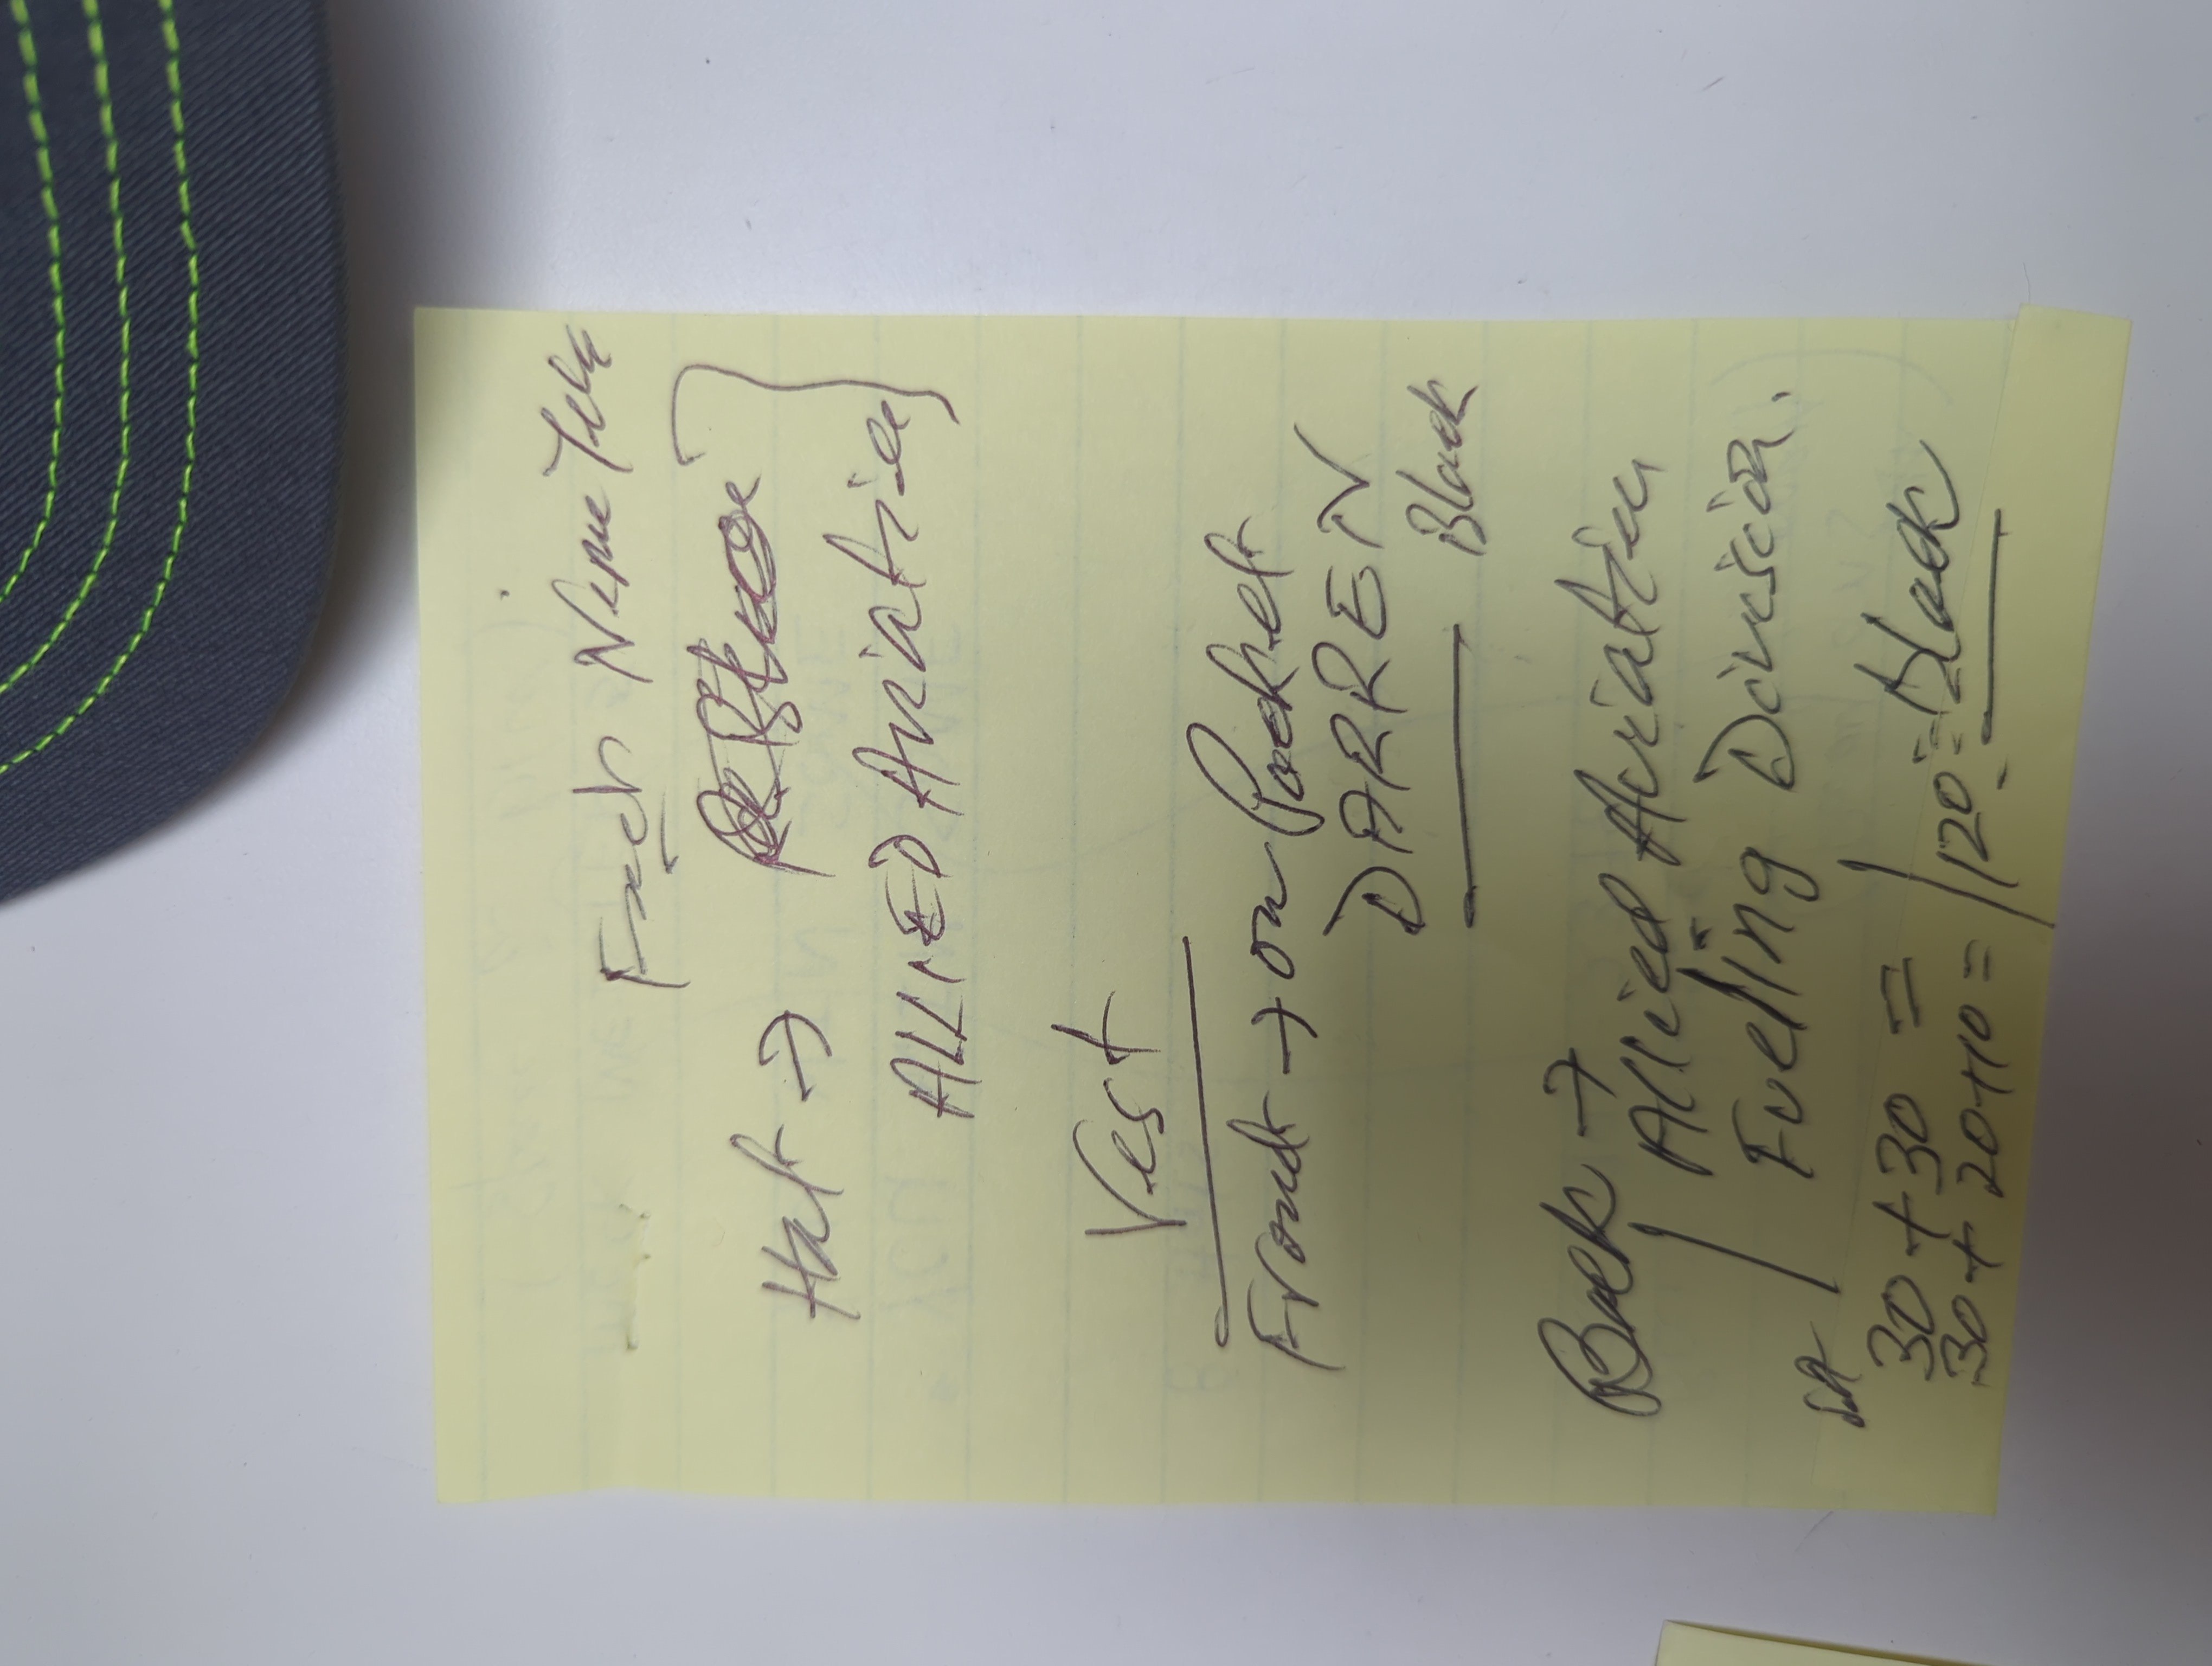 Hat →
ALLIED Aviation
Vest
Front → on Pocket
DARREN
Black
Back →
Allied Aviation
Fueling Division.
30 + 30 =
30 + 20 + 10 = 120 = black